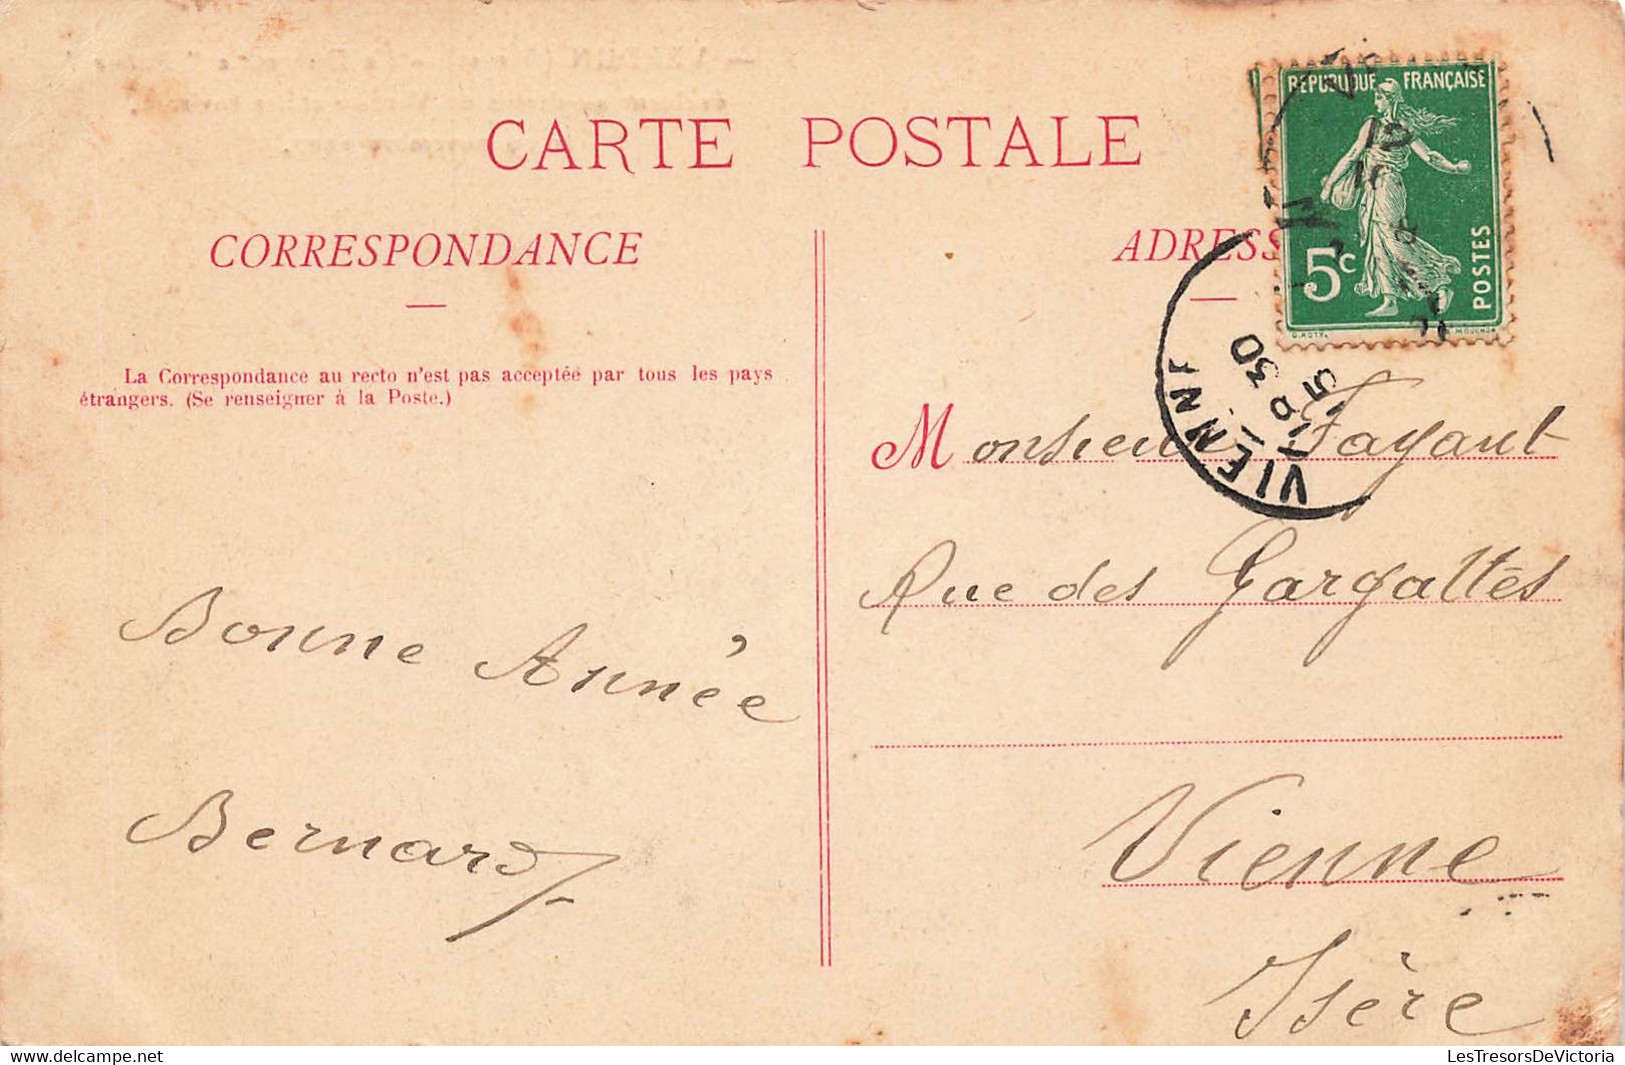 CARTE POSTALE
CORRESPONDANCE
La Correspondance au recto n'est pas acceptée par tous les pays
étrangers. (Se renseigner à la Poste.)
Bonne Année
Bernard
ADRESS
REPUBLIQUE FRANÇAISE
5c
POSTES
O. ROTY.
MOUCHON
VIENN
Monsieur Fayant
Rue des Gargattes
Vienne
Isère
LesTresorsDeVictoria